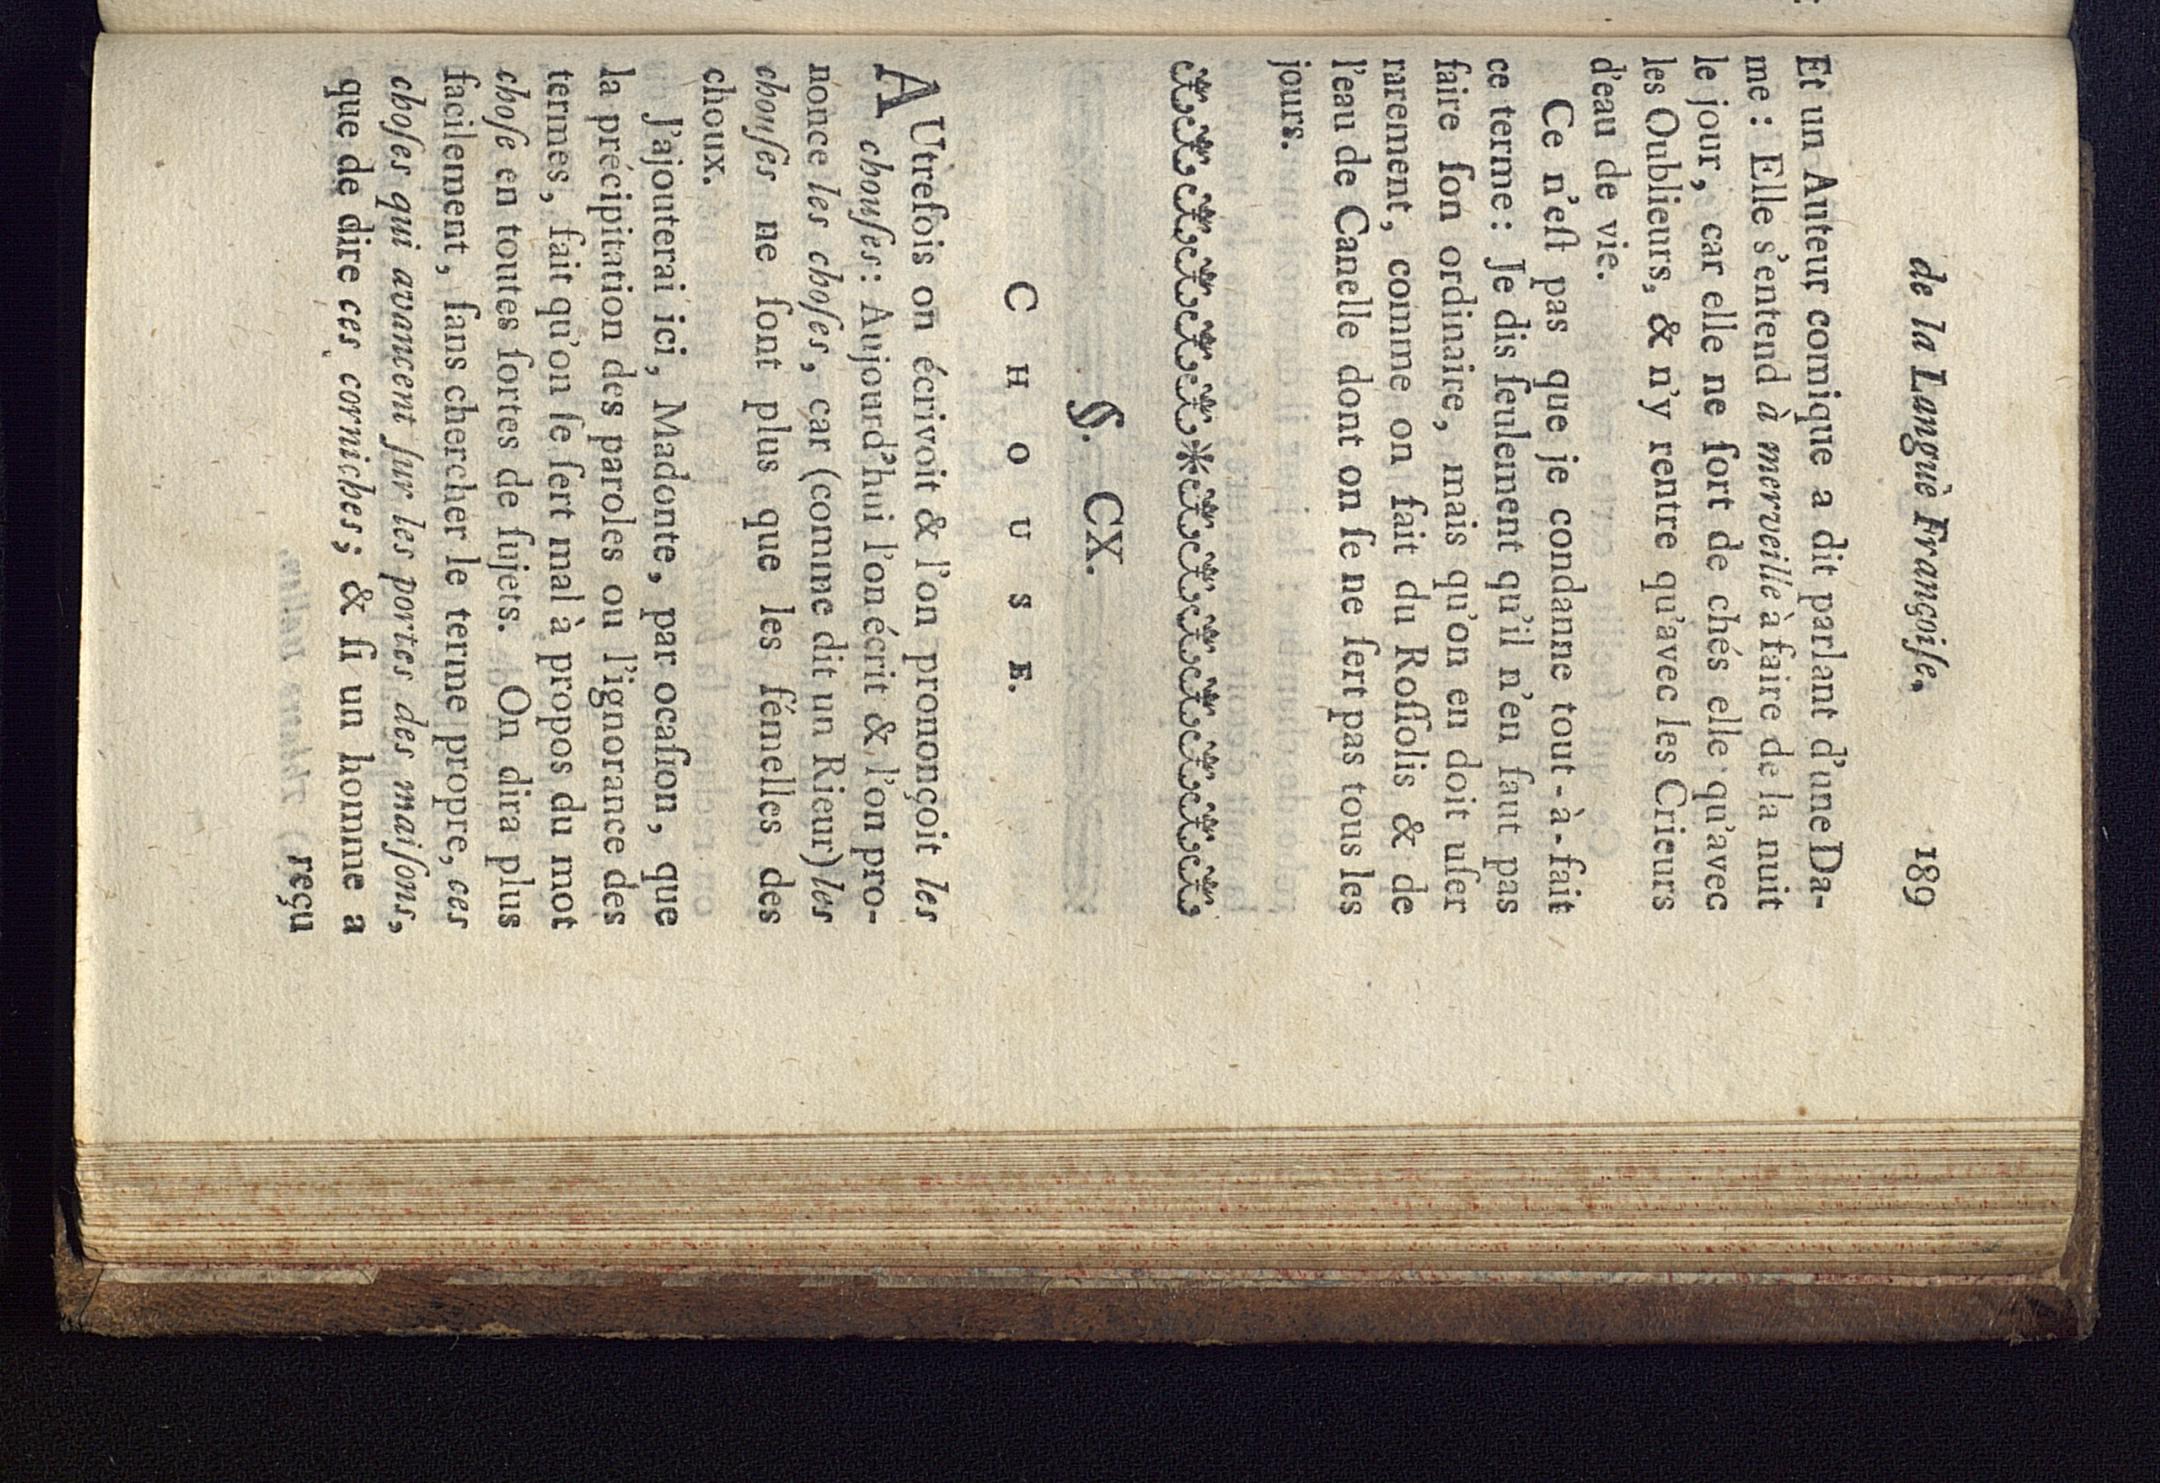 de la Langue Françoiſe. 189
Et un Auteur comique a dit parlant d'une Da-
me : Elle s'entend à merveille à faire de la nuit
le jour, car elle ne ſort de chés elle qu'avec
les Oublieurs, & n'y rentre qu'avec les Crieurs
d'eau de vie.
Ce n'eſt pas que je condanne tout-à-fait
ce terme : Je dis ſeulement qu'il n'en faut pas
faire ſon ordinaire, mais qu'on en doit uſer
rarement, comme on fait du Roſſolis & de
l'eau de Canelle dont on ſe ne ſert pas tous les
jours.
§. CX.
CHOUSE.
AUtrefois on écrivoit & l'on prononçoit les
chouſes : Aujourd'hui l'on écrit & l'on pro-
nonce les choſes, car (comme dit un Rieur) les
chouſes ne ſont plus que les fémelles des
choux.
J'ajouterai ici, Madonte, par ocaſion, que
la précipitation des paroles ou l'ignorance des
termes, fait qu'on ſe ſert mal à propos du mot
choſe en toutes ſortes de ſujets. On dira plus
facilement, ſans chercher le terme propre, ces
choſes qui avancent ſur les portes des maiſons,
que de dire ces corniches; & ſi un homme a
reçu